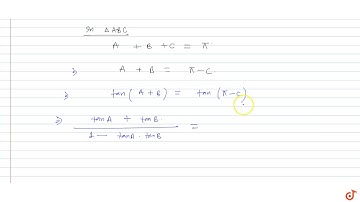 In △ABC
A + B + C = π
⇒ A + B = π - C
⇒ tan(A + B) = tan(π - C)
⇒ tanA + tanB
1 - tanA . tanB =